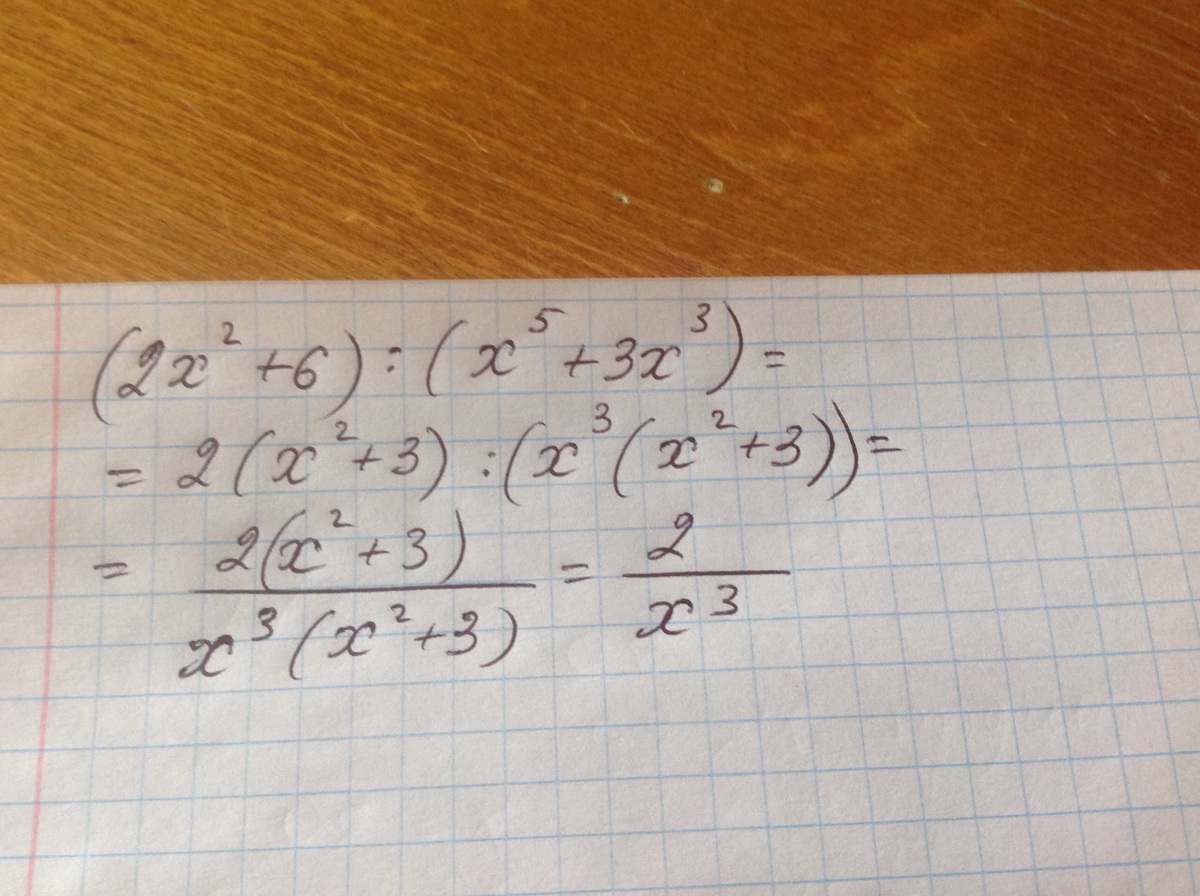 (2x² + 6) : (x⁵ + 3x³) =
= 2(x² + 3) : (x³(x² + 3)) =
= \frac{2(x² + 3)}{x³(x² + 3)} = \frac{2}{x³}